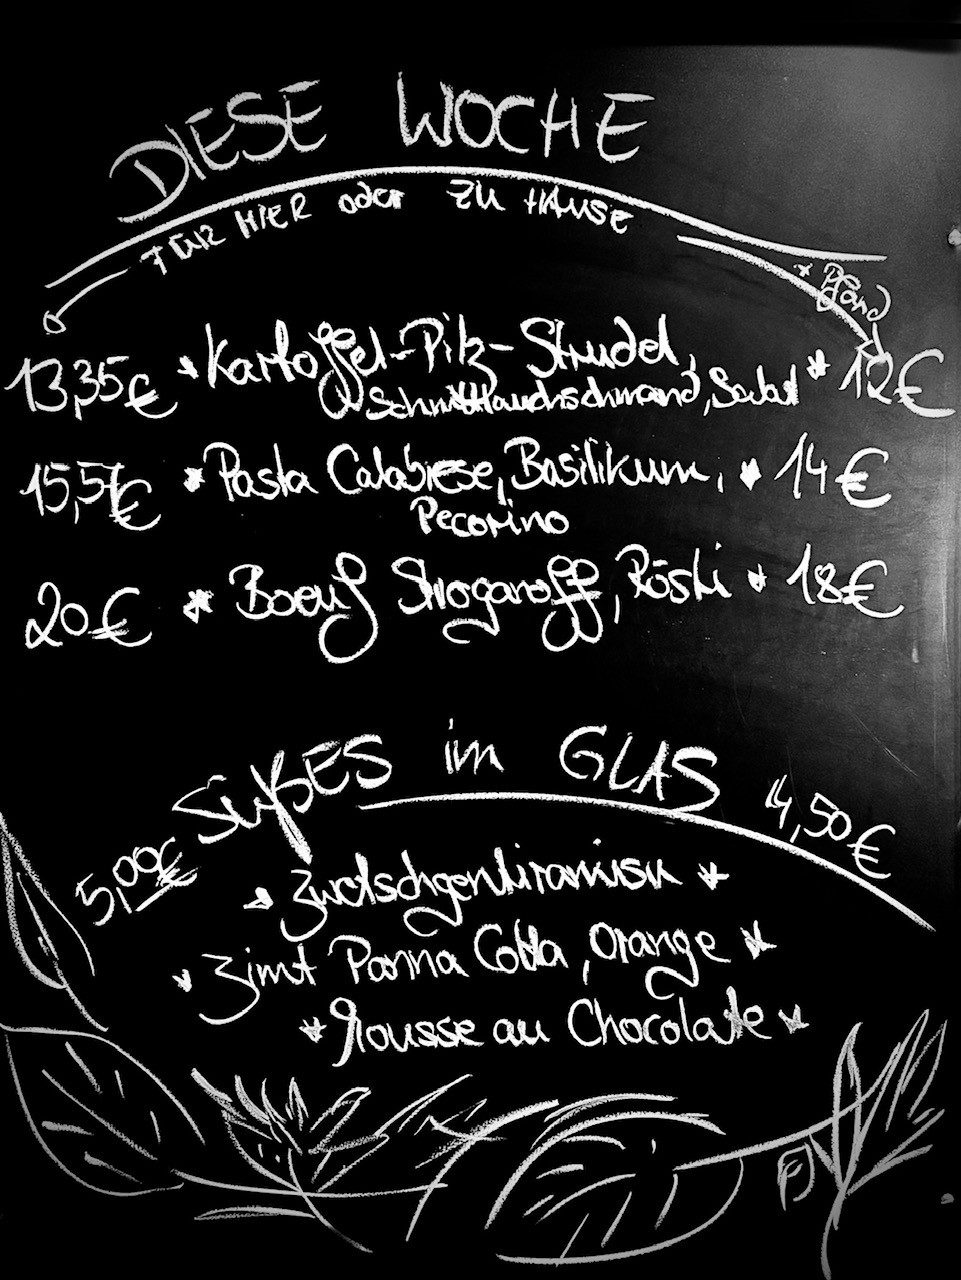 DIESE WOCHE
FÜR HIER oder ZU HAUSE
+ Pfand
13,35€ * Kartoffel-Pilz-Strudel, * 12€
Schnittlauchschmand, Salat
15,57€ * Pasta Calabrese, Basilikum, * 14€
Pecorino
20€ * Boeuf Stroganoff, Rösti * 18€
SÜßES im GLAS
5,00€ 4,50€
* Zwetschgentiramisu *
* Zimt Panna Cotta, Orange *
* Mousse au Chocolate *